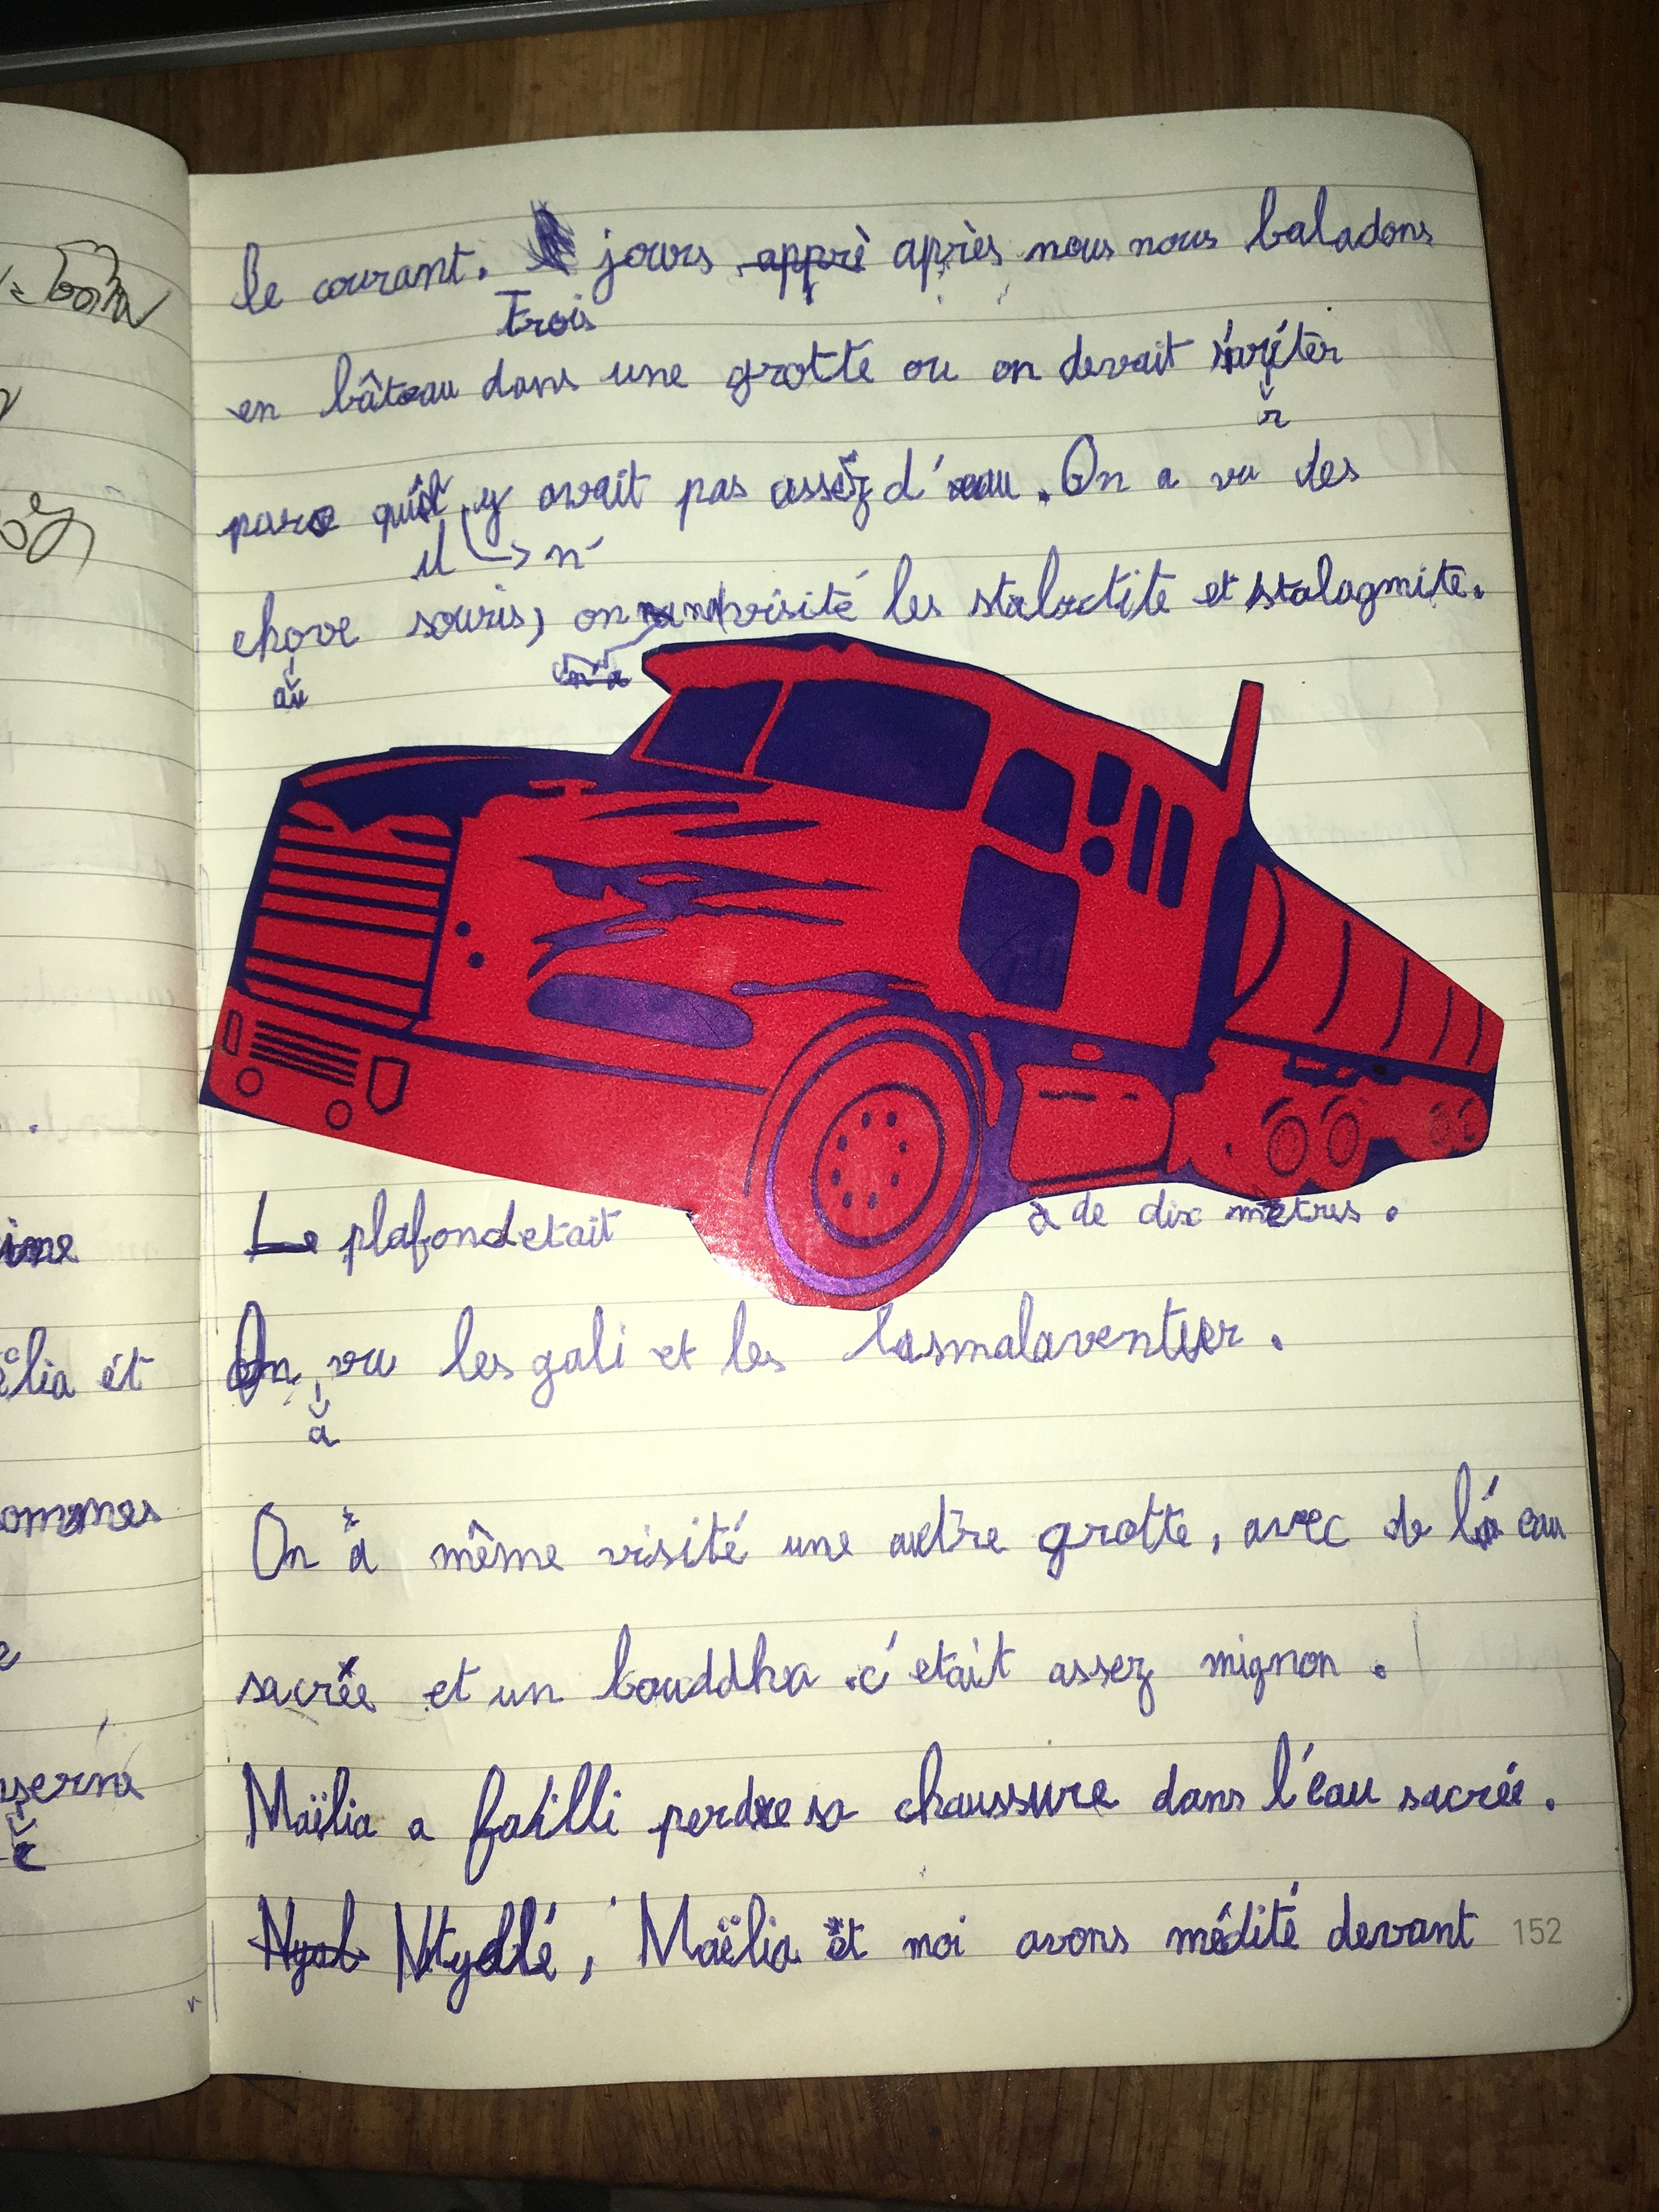 le courant. jours apprè après nous nous baladons
Trois
en bâteau dans une grotte ou on devait s'arréter
r
parce qu'il y avait pas assez d'eau. On a vu des
il → n'
chove souris, on visité les stalactite et stalagmite.
au
n'a
Le plafond etait à de dix mètres.
On vu les gali et les lasmalaventier.
a
On a même visité une autre grotte, avec de l'eau
sacrée et un bouddha. c'etait assez mignon.
Maëlia a failli perdre sa chaussure dans l'eau sacrée.
Nyol Ntydlé, Maëlia et moi avons médité devant
152
ime
élia ét
ommes
e
serna